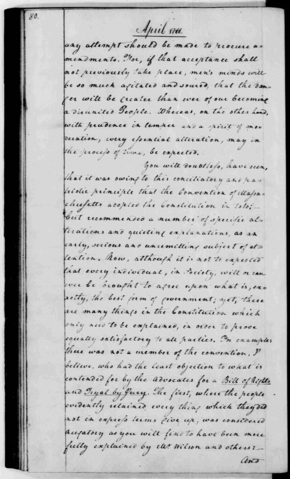 80.
April 1788.
any attempt should be made to procure a-
mendments. For, if that acceptance shall
not previously take place, men's minds will
be so much agitated and soured, that the dan-
ger will be greater than ever of our becoming
a disunited People. Whereas, on the other hand,
with prudence in temper and a spirit of mod-
eration, every essential alteration, may in
the process of time, be expected.
You will doubtless, have seen,
that it was owing to this conciliatory and pa-
triotic principle that the Convention of Massa-
chusetts adopted the Constitution in toto;
but recommended a number of specific al-
terations and quieting explanations, as an
early, serious and unremitting subject of at-
tention. Now, although it is not to be expected
that every individual, in Society, will or can
ever be brought to agree upon what is, ex-
actly, the best form of government; yet, there
are many things in the Constitution which
only need to be explained, in order to prove
equally satisfactory to all parties. For example:
there was not a member of the convention, I
believe, who had the least objection to what is
contended for by the advocates for a Bill of Rights
and Tryal by Jury. The first, where the people
evidently retained every thing which they did
not in express terms give up, was considered
nugatory as you will find to have been more
fully explained by Mr. Wilson and others:—
And